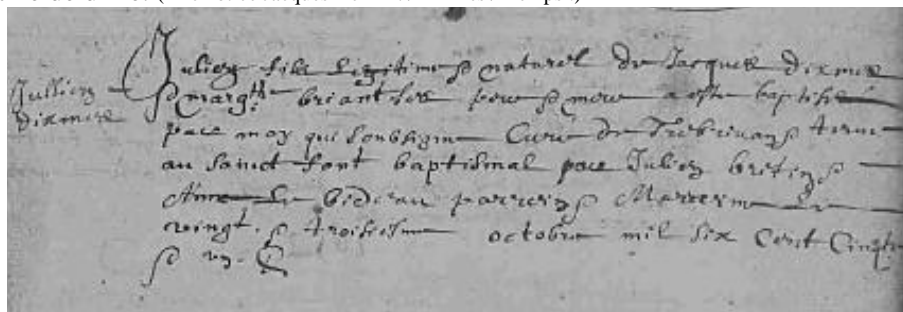 Jullien
dixmier
Julien fils legitime & naturel de Jacques dixmier
& marg.te briant ses pere & mere a este baptisé
par moy qui soubsigne Curé de Trebrivan & tenu
au sainct font baptismal par Julien
& Anne Le bideau parrein & Marreine Le
vingt & troisiesme octobre mil six Cent Cinqte
&